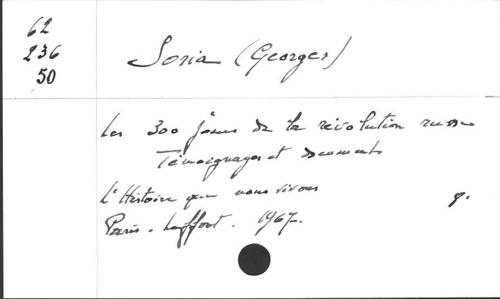 62
236
50
Soria (Georges)
Les 300 jours de la révolution russe
Témoignages et documents
L'Histoire que nous vivons
Paris. Laffont. 1967.